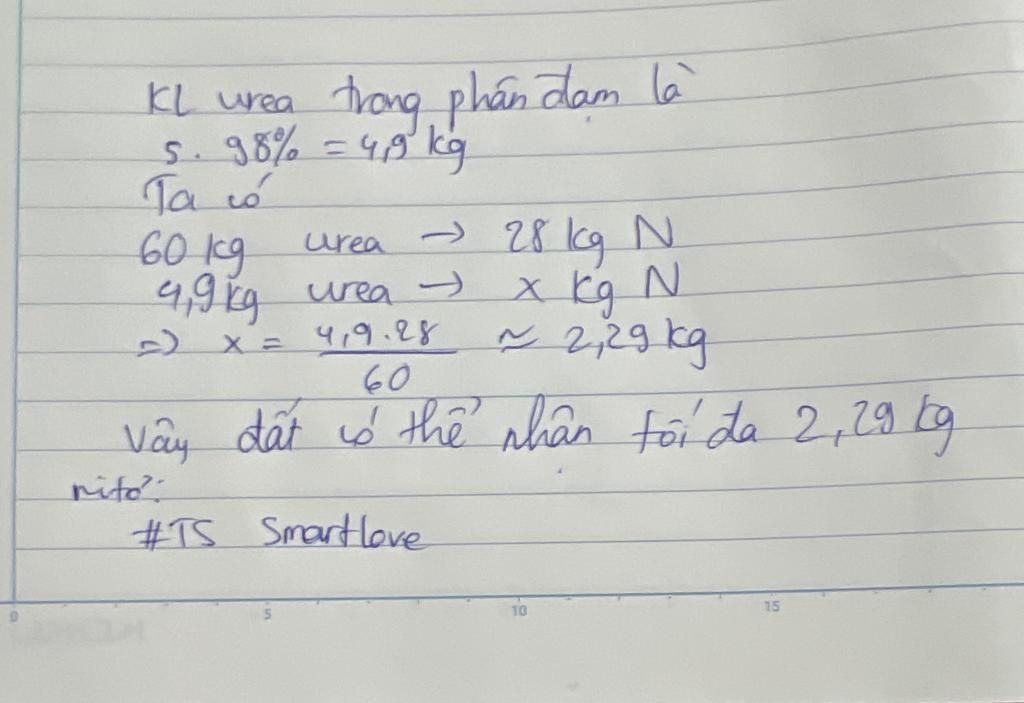 KL urea trong phân đạm là
5. 98% = 4,9 kg
Ta có
60 kg urea → 28 kg N
4,9 kg urea → x kg N
=> x = 4,9.28 / 60 ≈ 2,29 kg
Vậy đất có thể nhận tối đa 2,29 kg
nitơ:
#TS Smartlove
0 5 10 15